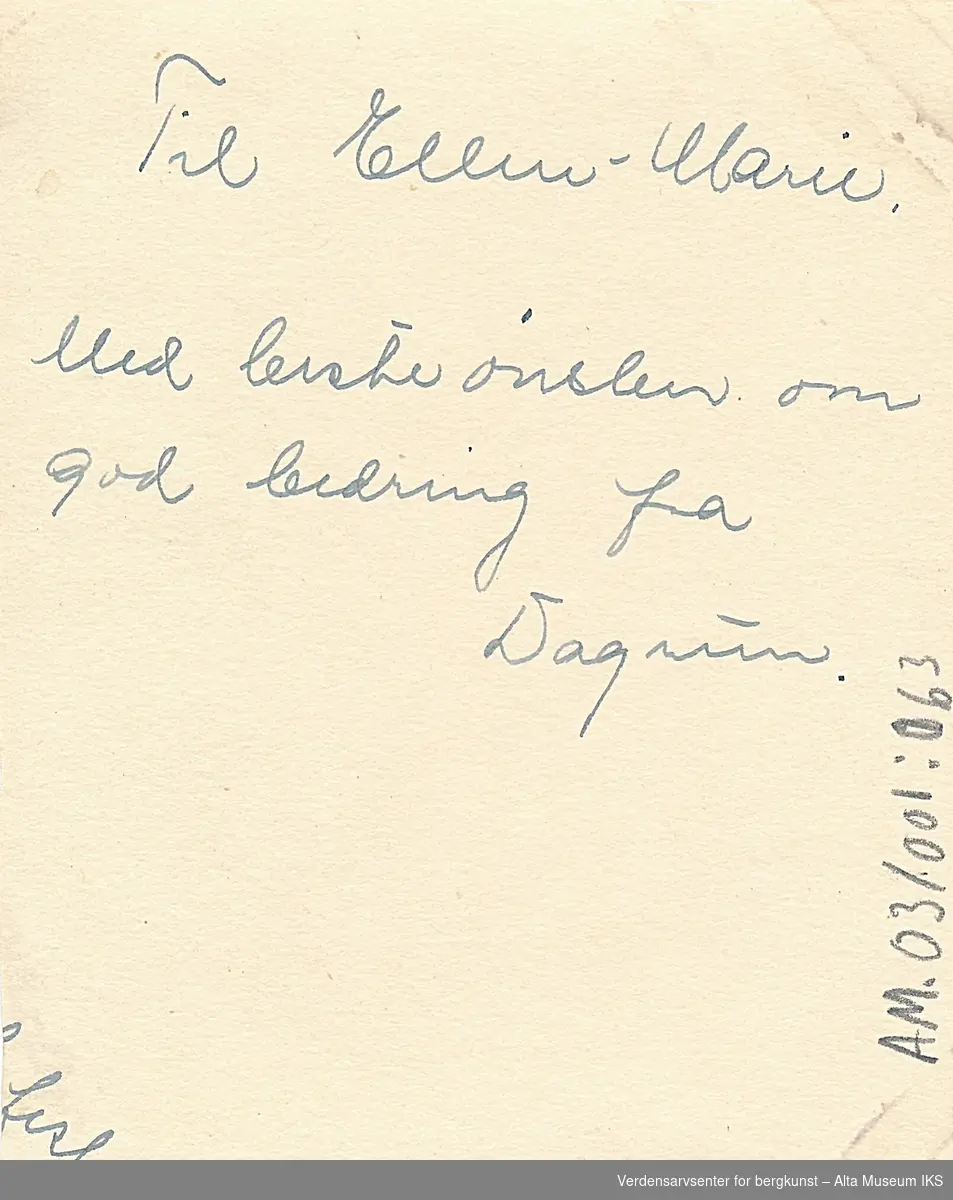 Til Ellen-Marie.
Med beste ønsker om
god bedring fra
Dagrun.
AM.03/001:063
Verdensarvsenter for bergkunst – Alta Museum IKS